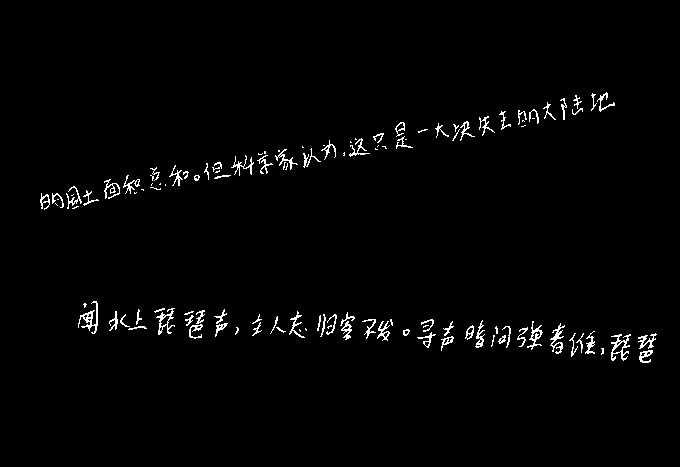 的国土面积总和。但科学家认为,这只是一大块失去的大陆地
闻水上琵琶声,主人忘归客不发。寻声暗问弹者谁,琵琶